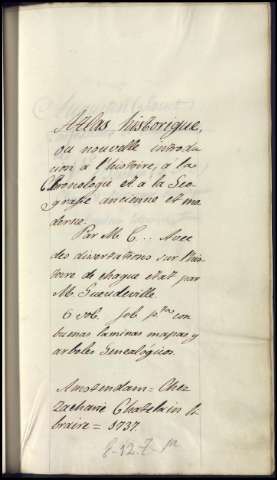 Atlas historique,
ou nouvelle introdu
cion a l'histoire, a la
Chronologie et a la Geo
grafie ancienne et mo
derne.
Par M. C... Avec
des dissertations sur l'his
toire de chaque etat par
M. Gueudeville.
6 vol. fol. pta con
buenas laminas mapas y
arboles Genealógicos.
Amsterdam = Chez
Zacharie Chatelain li
braire = 1737.
8-12-7-M